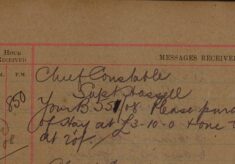 HOUR
RECEIVED
MESSAGES RECEIVED
P.M.
850
Chief Constable
Supt Hassell
Your B 551/08. Please
of stay at £3-10-0 + one
at 20/-.